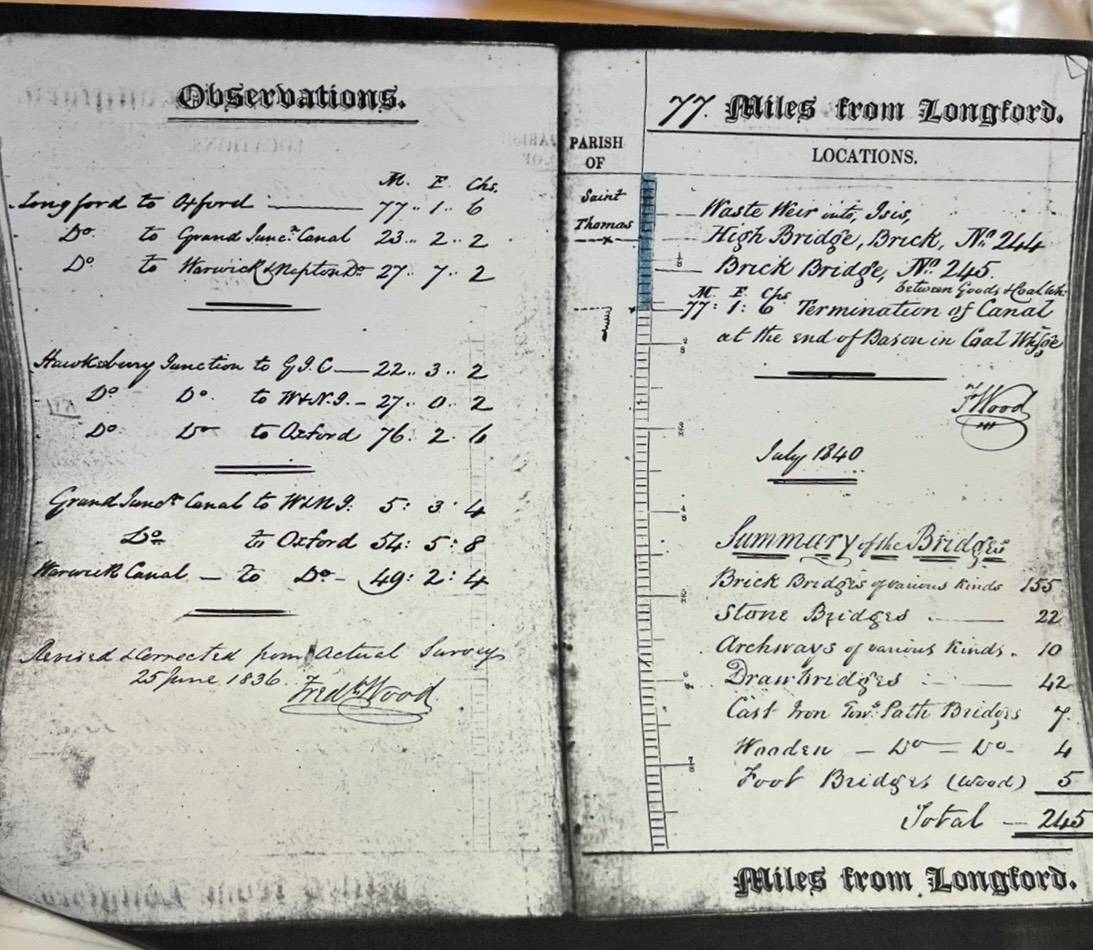 Observations.
M. F. Chs.
Longford to Oxford 77.. 1.. 6
Do. to Grand Juncn. Canal 23.. 2.. 2
Do. to Warwick & Napton Do. 27.. 7.. 2
Hawksbury Junction to G.J.C 22.. 3.. 2
Do Do. to W&N.J. 27.. 0.. 2
Do Do to Oxford 76: 2. 6
Grand Juncn Canal to W&N.J. 5: 3: 4
Do to Oxford 54: 5: 8
Warwick Canal — to Do - 49: 2: 4
Revised & Corrected from Actual Survey
25 June 1836. Fredk Wood
77. Miles from Longford.
PARISH
OF
LOCATIONS.
Saint
Thomas
Waste Weir into, Isis,
High Bridge, Brick, No. 244
Brick Bridge, No. 245.
between Goods & Coal Wh.
M. F. Chs
77: 1: 6 Termination of Canal
at the end of Bason in Coal
F Wood
July 1840
Summary of the Bridges
Brick Bridges of various kinds 155
Stone Bridges 22
Archways of various kinds. 10
Drawbridges 42
Cast Iron Towg. Path Bridges 7
Wooden — Do — Do - 4
Foot Bridges (Wood) 5
Total — 245
1/8
2/8
3/8
4/8
5/8
6/8
7/8
Miles from Longford.